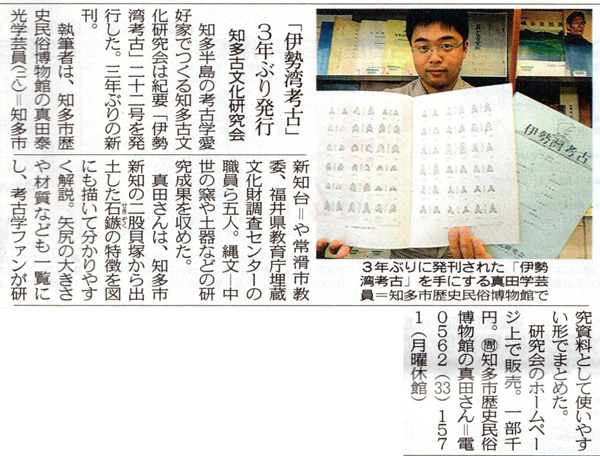 「伊勢湾考古」
3年ぶり発行
知多古文化研究会
知多半島の考古学愛
好家でつくる知多古文
化研究会は紀要「伊勢
湾考古」二十二号を発
行した。三年ぶりの新
刊。
執筆者は、知多市歴
史民俗博物館の真田泰
光学芸員=知多市
新知台=や常滑市教
委、福井県教育庁埋蔵
文化財調査センターの
職員ら五人。縄文―中
世の窯や土器などの研
究成果を収めた。
真田さんは、知多市
新知の二股貝塚から出
土した石鏃の特徴を図
にも描いて分かりやす
く解説。矢尻の大きさ
や材質なども一覧に
し、考古学ファンが研
究資料として使いやす
い形でまとめた。
研究会のホームペー
ジ上で販売。一部千
円。㉄知多市歴史民俗
博物館の真田さん=電
0562(33)157
1(月曜休館)
伊勢湾考古
3年ぶりに発刊された「伊勢
湾考古」を手にする真田学芸
員=知多市歴史民俗博物館で